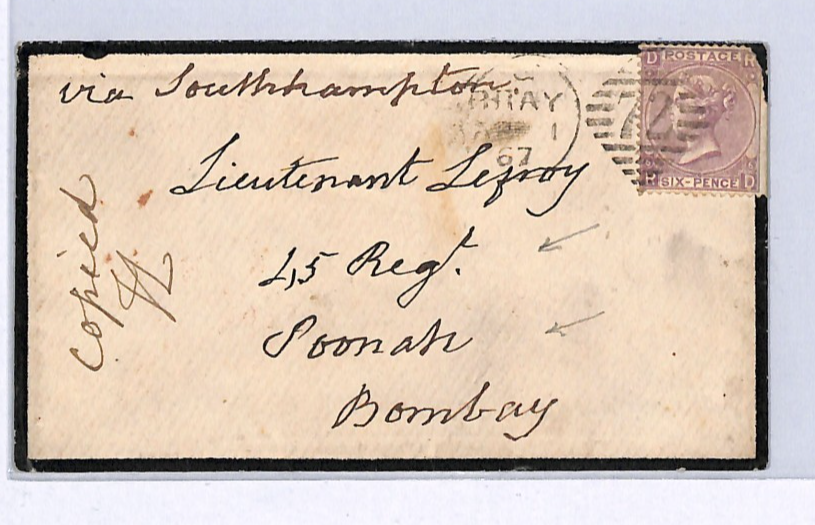 via Southhampton
Lieutenant Lefroy
45 Regt.
Poonah
Bombay
copied
1
67
72
D POSTAGE R
R SIX-PENCE D